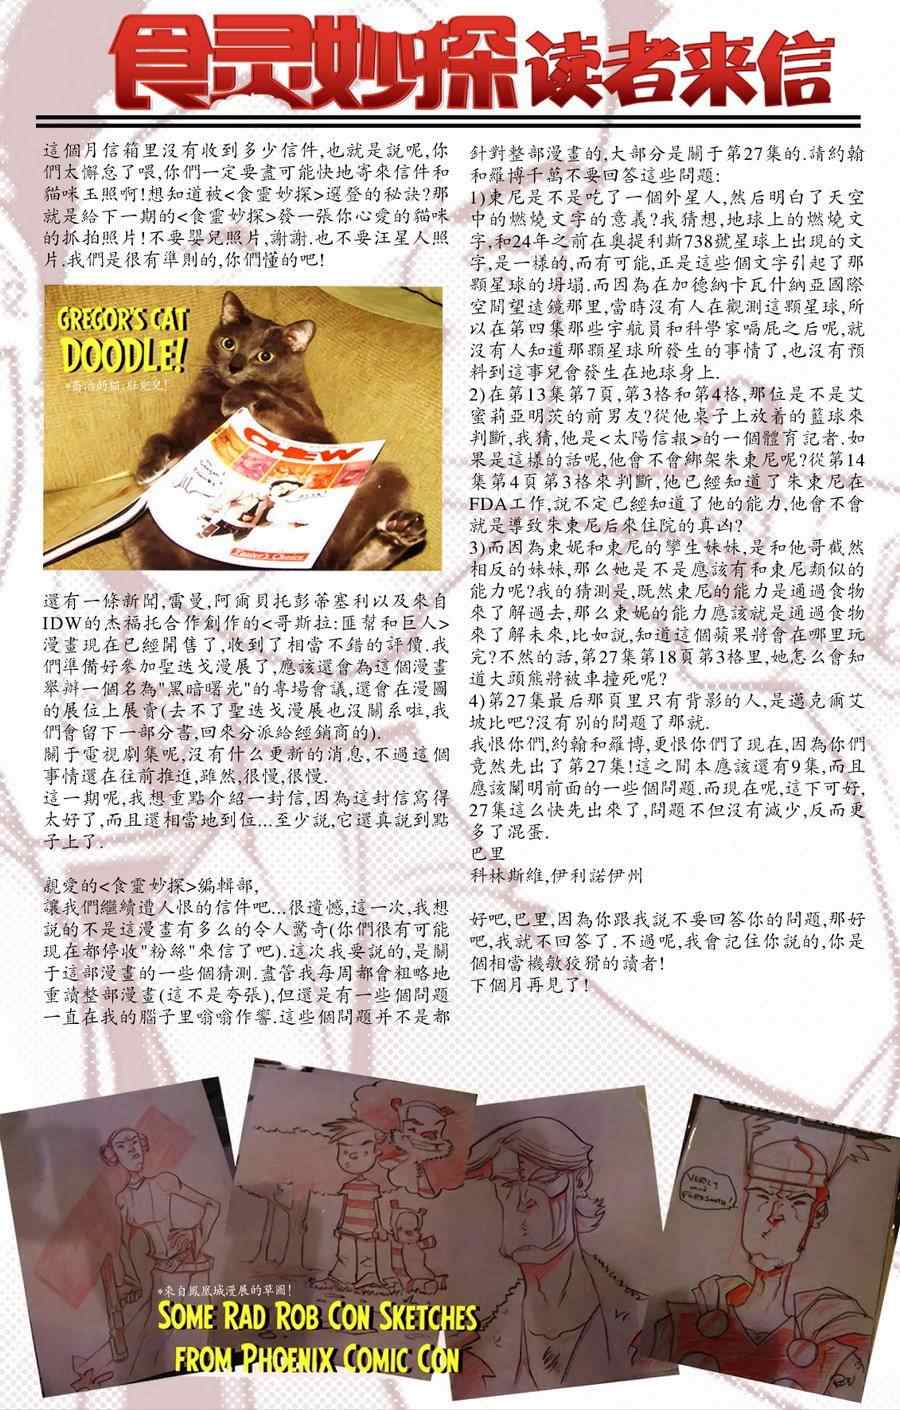 食灵妙探读者来信
這個月信箱里沒有收到多少信件,也就是說呢,你
們太懈怠了喂,你們一定要盡可能快地寄來信件和
貓咪玉照啊!想知道被<食靈妙探>選登的秘訣?那
就是給下一期的<食靈妙探>發一張你心愛的貓咪
的抓拍照片!不要嬰兒照片,謝謝.也不要汪星人照
片.我們是很有準則的,你們懂的吧!
GREGOR'S CAT
DOODLE!
CHEW
還有一條新聞,雷曼,阿爾貝托彭蒂塞利以及來自
IDW的杰福托合作創作的<哥斯拉:匪幫和巨人>
漫畫現在已經開售了,收到了相當不錯的評價.我
們準備好參加聖迭戈漫展了,應該還會為這個漫畫
舉辦一個名為"黑暗曙光"的專場會議,還會在漫國
的展位上展賣(去不了聖迭戈漫展也沒關系啦,我
們會留下一部分書,回來分派給經銷商的).
關于電視劇集呢,沒有什么更新的消息,不過這個
事情還在往前推進,雖然,很慢,很慢.
這一期呢,我想重點介紹一封信,因為這封信寫得
太好了,而且還相當地到位...至少說,它還真說到點
子上了.
親愛的<食靈妙探>編輯部,
讓我們繼續遭人恨的信件吧...很遺憾,這一次,我想
說的不是這漫畫有多么的令人驚奇(你們很有可能
現在都停收"粉絲"來信了吧).這次我要說的,是關
于這部漫畫的一些個猜測.盡管我每周都會粗略地
重讀整部漫畫(這不是夸張),但還是有一些個問題
一直在我的腦子里嗡嗡作響.這些個問題并不是都
針對整部漫畫的,大部分是關于第27集的.請約翰
和羅博千萬不要回答這些問題:
1)東尼是不是吃了一個外星人,然后明白了天空
中的燃燒文字的意義?我猜想,地球上的燃燒文
字,和24年之前在奧提利斯738號星球上出現的文
字,是一樣的,而有可能,正是這些個文字引起了那
顆星球的坍塌.而因為在加德納卡瓦什納亞國際
空間望遠鏡那里,當時沒有人在觀測這顆星球,所
以在第四集那些宇航員和科學家嗝屁之后呢,就
沒有人知道那顆星球所發生的事情了,也沒有預
料到這事兒會發生在地球身上.
2)在第13集第7頁,第3格和第4格,那位是不是艾
蜜莉亞明茨的前男友?從他桌子上放着的籃球來
判斷,我猜,他是<太陽信報>的一個體育記者.如
果是這樣的話呢,他會不會綁架朱東尼呢?從第14
集第4頁第3格來判斷,他已經知道了朱東尼在
FDA工作,說不定已經知道了他的能力,他會不會
就是導致朱東尼后來住院的真凶?
3)而因為東妮和東尼的孿生妹妹,是和他哥截然
相反的妹妹,那么她是不是應該有和東尼類似的
能力呢?我的猜測是,既然東尼的能力是通過食物
來了解過去,那么東妮的能力應該就是通過食物
來了解未來,比如說,知道這個蘋果將會在哪里玩
完?不然的話,第27集第18頁第3格里,她怎么會知
道大頭熊將被車撞死呢?
4)第27集最后那頁里只有背影的人,是邁克爾艾
坡比吧?沒有別的問題了那就.
我恨你們,約翰和羅博,更恨你們了現在,因為你們
竟然先出了第27集!這之間本應該還有9集,而且
應該闡明前面的一些個問題.而現在呢,這下可好,
27集這么快先出來了,問題不但沒有減少,反而更
多了混蛋.
巴里
科林斯維,伊利諾伊州
好吧,巴里,因為你跟我說不要回答你的問題,那好
吧,我就不回答了.不過呢,我會記住你說的,你是
個相當機敏狡猾的讀者!
下個月再見了!
VERLY
AND
FORSOOTH!
*來自鳳凰城漫展的草圖!
SOME RAD ROB CON SKETCHES
FROM PHOENIX COMIC CON